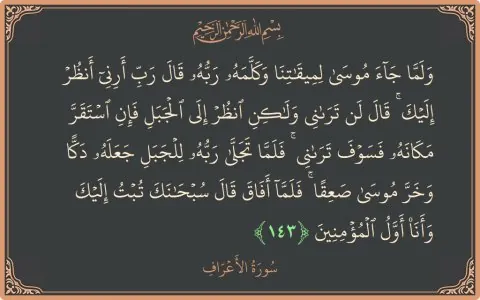 بِسْمِ اللَّهِ الرَّحْمَٰنِ الرَّحِيمِ
وَلَمَّا جَآءَ مُوسَىٰ لِمِيقَـٰتِنَا وَكَلَّمَهُۥ رَبُّهُۥ قَالَ رَبِّ أَرِنِىٓ أَنظُرْ
إِلَيْكَ ۚ قَالَ لَن تَرَىٰنِى وَلَـٰكِنِ ٱنظُرْ إِلَى ٱلْجَبَلِ فَإِنِ ٱسْتَقَرَّ
مَكَانَهُۥ فَسَوْفَ تَرَىٰنِى ۚ فَلَمَّا تَجَلَّىٰ رَبُّهُۥ لِلْجَبَلِ جَعَلَهُۥ دَكًّا
وَخَرَّ مُوسَىٰ صَعِقًا ۚ فَلَمَّآ أَفَاقَ قَالَ سُبْحَـٰنَكَ تُبْتُ إِلَيْكَ
وَأَنَا۠ أَوَّلُ ٱلْمُؤْمِنِينَ ﴿١٤٣﴾
سُورَةُ الأَعْرَافِ